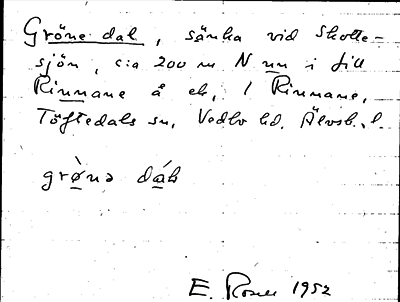 Gröne dal, sänka vid Skotte-
sjön, c:a 200 m N nn i till
Rinnane å ek, 1 Rinnane,
Töftedals sn, Vedbo hd. Älvsb. l.
grøna dál
E. Rosell 1952